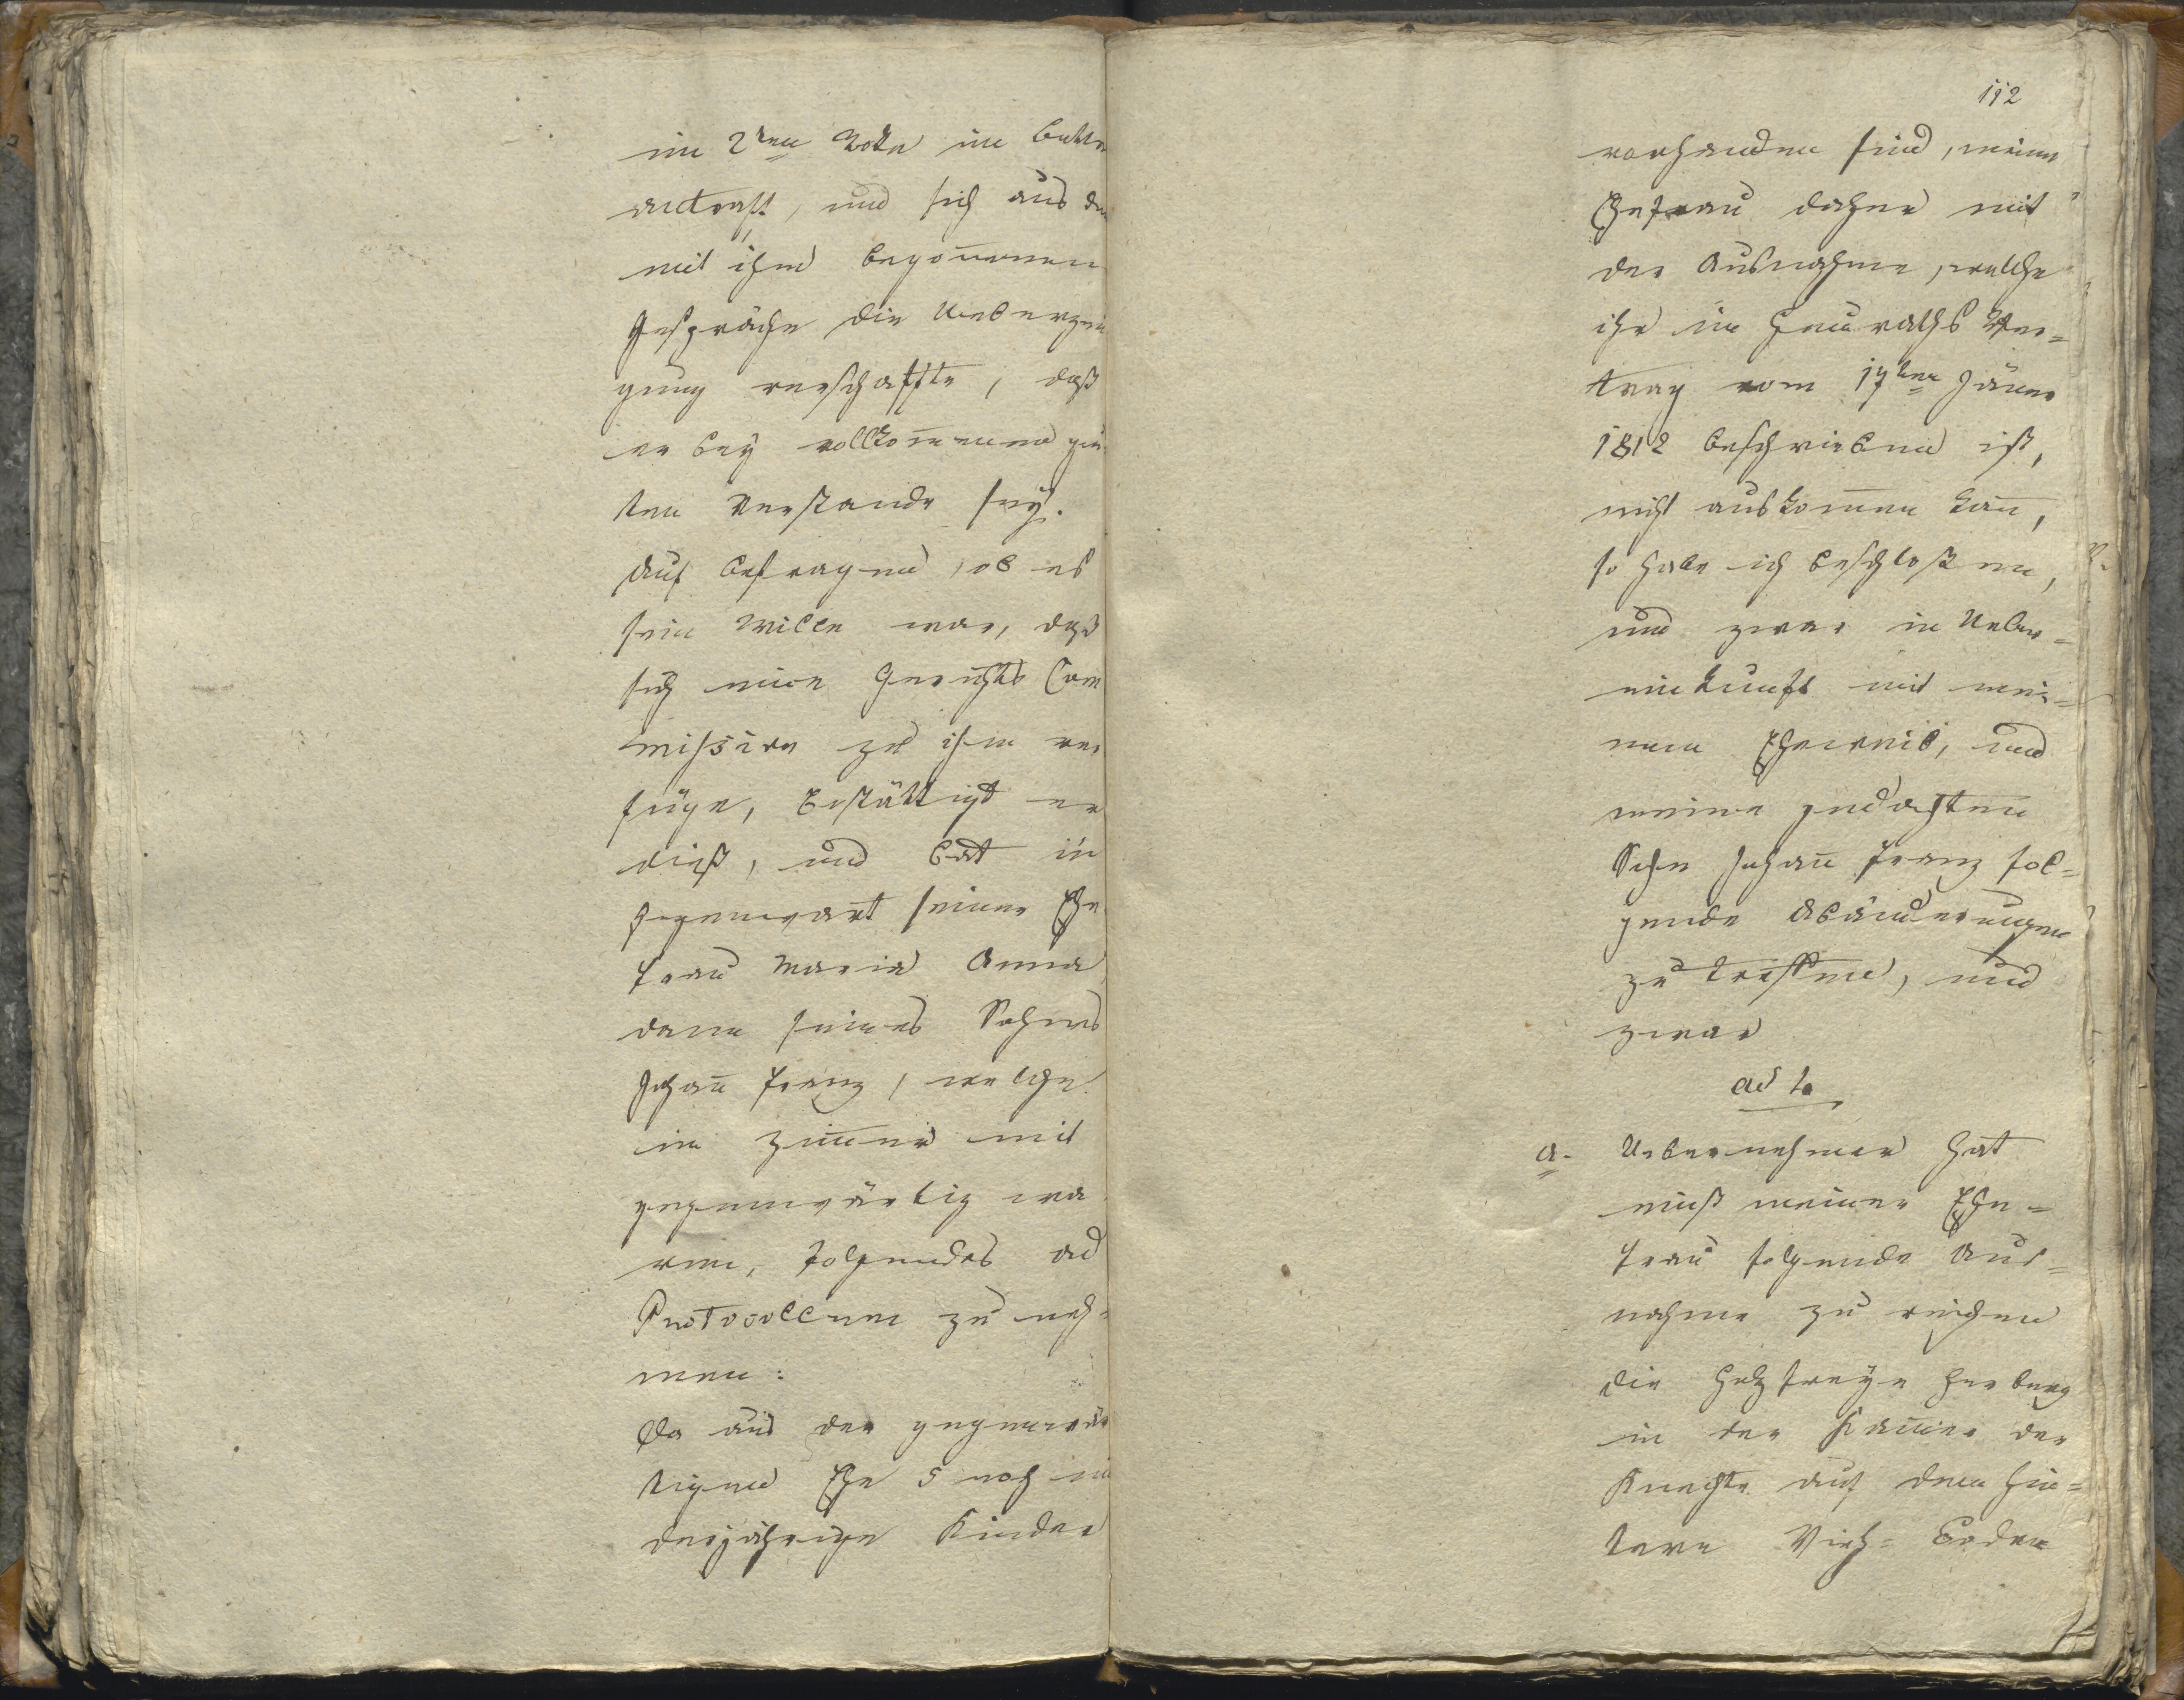 im 2ten Stoke im Bette
antraff, und sich aus dem
mit ihm begonnenen
Gespräche die Ueberzeu
gung verschaffte, daß
er bey vollkommen gu
ten Verstande sey.
Auf Befragen, ob es
sein Wille war, daß
sich eine Gerichts Com
mission zu ihm ver
füge, bestättigt er
dieß, und bat in
Gegenwart seiner Ehe
frau Maria Anna
dann seines Sohnes
Johañ Franz, welche
im Zim̄er mit
gegenwärtig wa
ren, folgendes ad
Protocollum zu neh=
men:
Da aus der gegenwär
tigen Ehe 5 noch min
derjährige Kinder
112
vorhanden sind, meine
Ehefrau daher mit
der Ausnahme, welche
ihr im Heuraths Ver=
trag vom 17ten Jäner
1812 beschrieben ist,
nicht auskom̄en kañ,
so habe ich beschloßen,
und zwar in Ueber=
einkunft mit mei=
nem Eheweib, und
meinem gedachten
Sohn Johañ Franz fol=
gende Abänderungen
zu treffen, und
zwar
ad 1o
a. Uebernehmer hat
einst meiner Ehe=
frau folgende Aus=
nahme zu reichen
die Holzfreye Herberg
in der Kam̄er der
Knechte auf dem hin=
tern Vieh= Boden